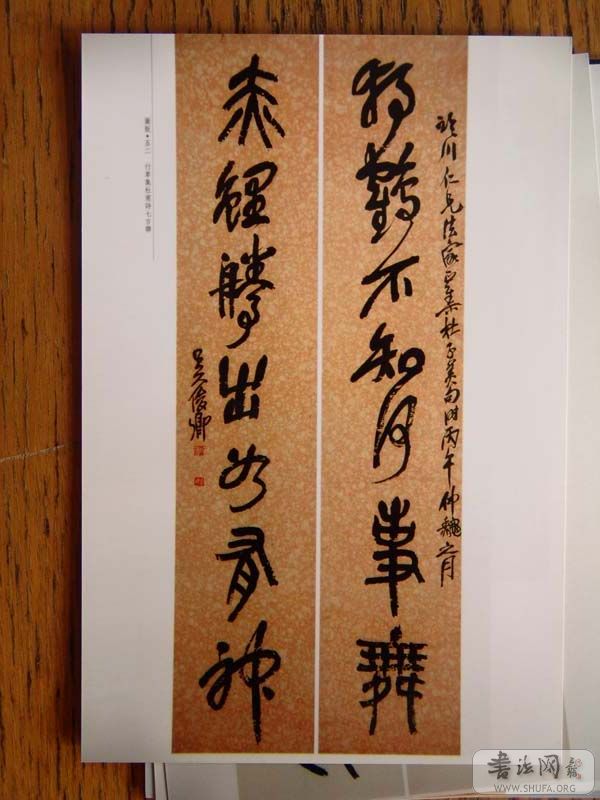 川仁兄法家正集杜子美句時丙午仲龝之月
獨鶴不知何事舞
赤鯉騰出如有神
吳俊卿
圖版•五二 行草集杜甫詩七言聯
書法网
WWW.SHUFA.ORG